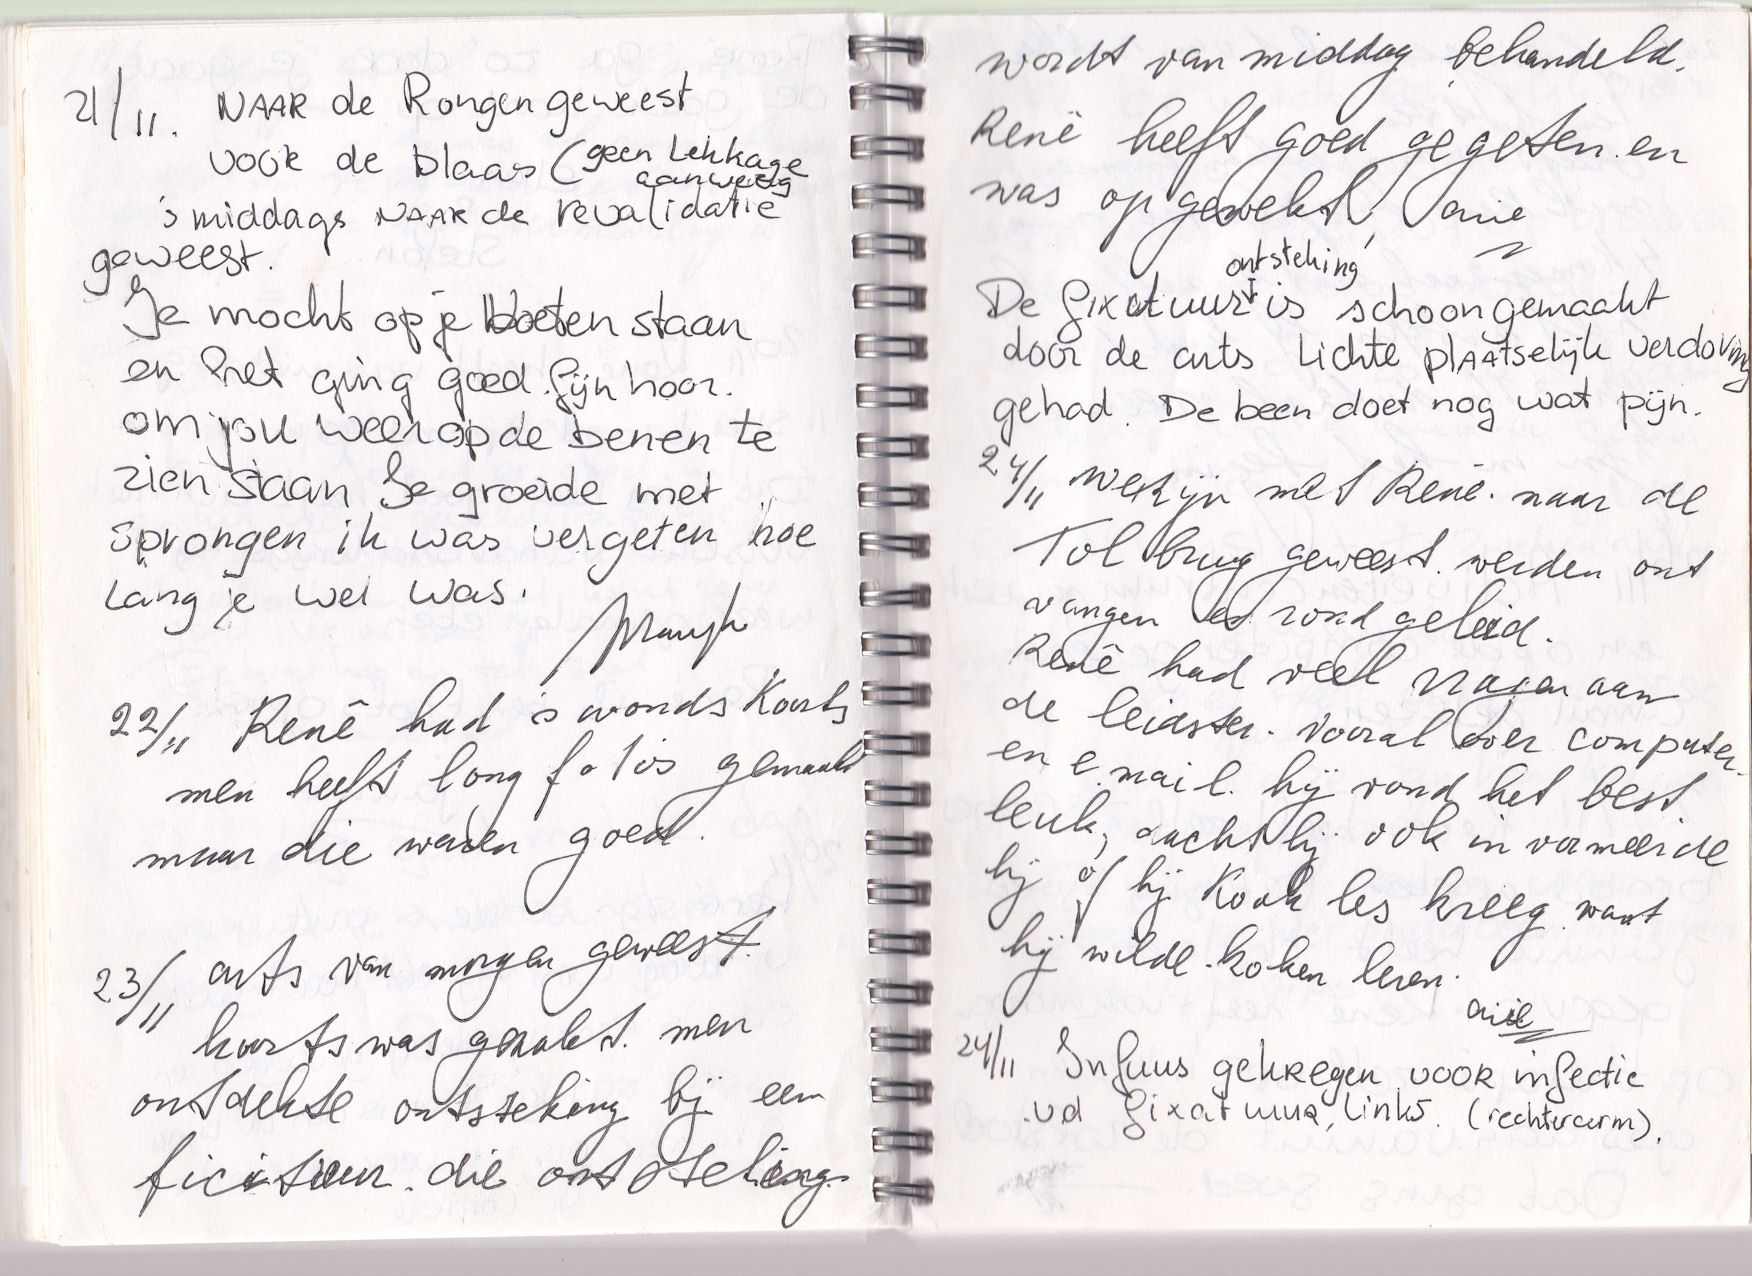 21/11. NAAR de Rongen geweest
voor de blaas (geen Lekkage
aanwezig
's middags NAAR de revalidatie
geweest.
Je mocht op je voeten staan
en het ging goed. fijn hoor.
om jou weer op de benen te
zien staan Je groeide met
sprongen ik was vergeten hoe
Lang je wel was.
22/11 René had 's avonds Koorts
men heeft long foto's gemaakt
maar die waren goed.
23/11 arts van morgen geweest.
koorts was gezakt. men
ontdekte ontsteking bij een
ficatuur. die ontsteking
wordt van middag behandeld.
René heeft goed gegeten. en
was opgewekt, Arie
ontsteking
De fixatuur is schoongemaakt
door de arts Lichte plaatselijk verdoving
gehad. De been doet nog wat pijn.
24/11 We zijn met René. naar de
Tolbrug geweest. werden ont
vangen en rond geleid.
René had veel vragen aan
de leidster. vooral over computer.
en e mail. hij vond het best
leuk, dacht hij ook in
hij of hij Kook les kreeg want
hij wilde koken leren.
Arie
24/11 Infuus gekregen voor infectie
vd fixatuur, links. (rechterarm).